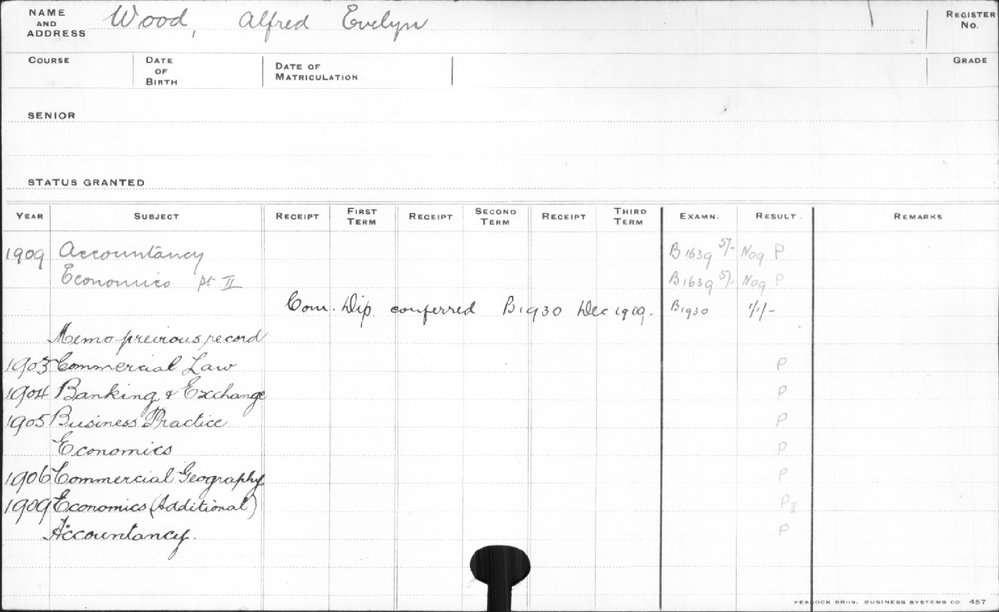 NAME AND ADDRESS Wood, Alfred Evelyn REGISTER No.
COURSE DATE OF BIRTH DATE OF MATRICULATION GRADE
SENIOR
STATUS GRANTED
YEAR SUBJECT RECEIPT FIRST TERM RECEIPT SECOND TERM RECEIPT THIRD TERM EXAMN. RESULT. REMARKS
1909 Accountancy B1639 5/- Nog P
Economics pt II B1639 5/- Nog P
Com. Dip conferred B1930 Dec 1909. B1930 1/1/-
Memo previous record
1903 Commercial Law P
1904 Banking & Exchange P
1905 Business Practice P
Economics P
1906 Commercial Geography P
1909 Economics (Additional) P II
Accountancy. P
PEACOCK BROS. BUSINESS SYSTEMS CO 457